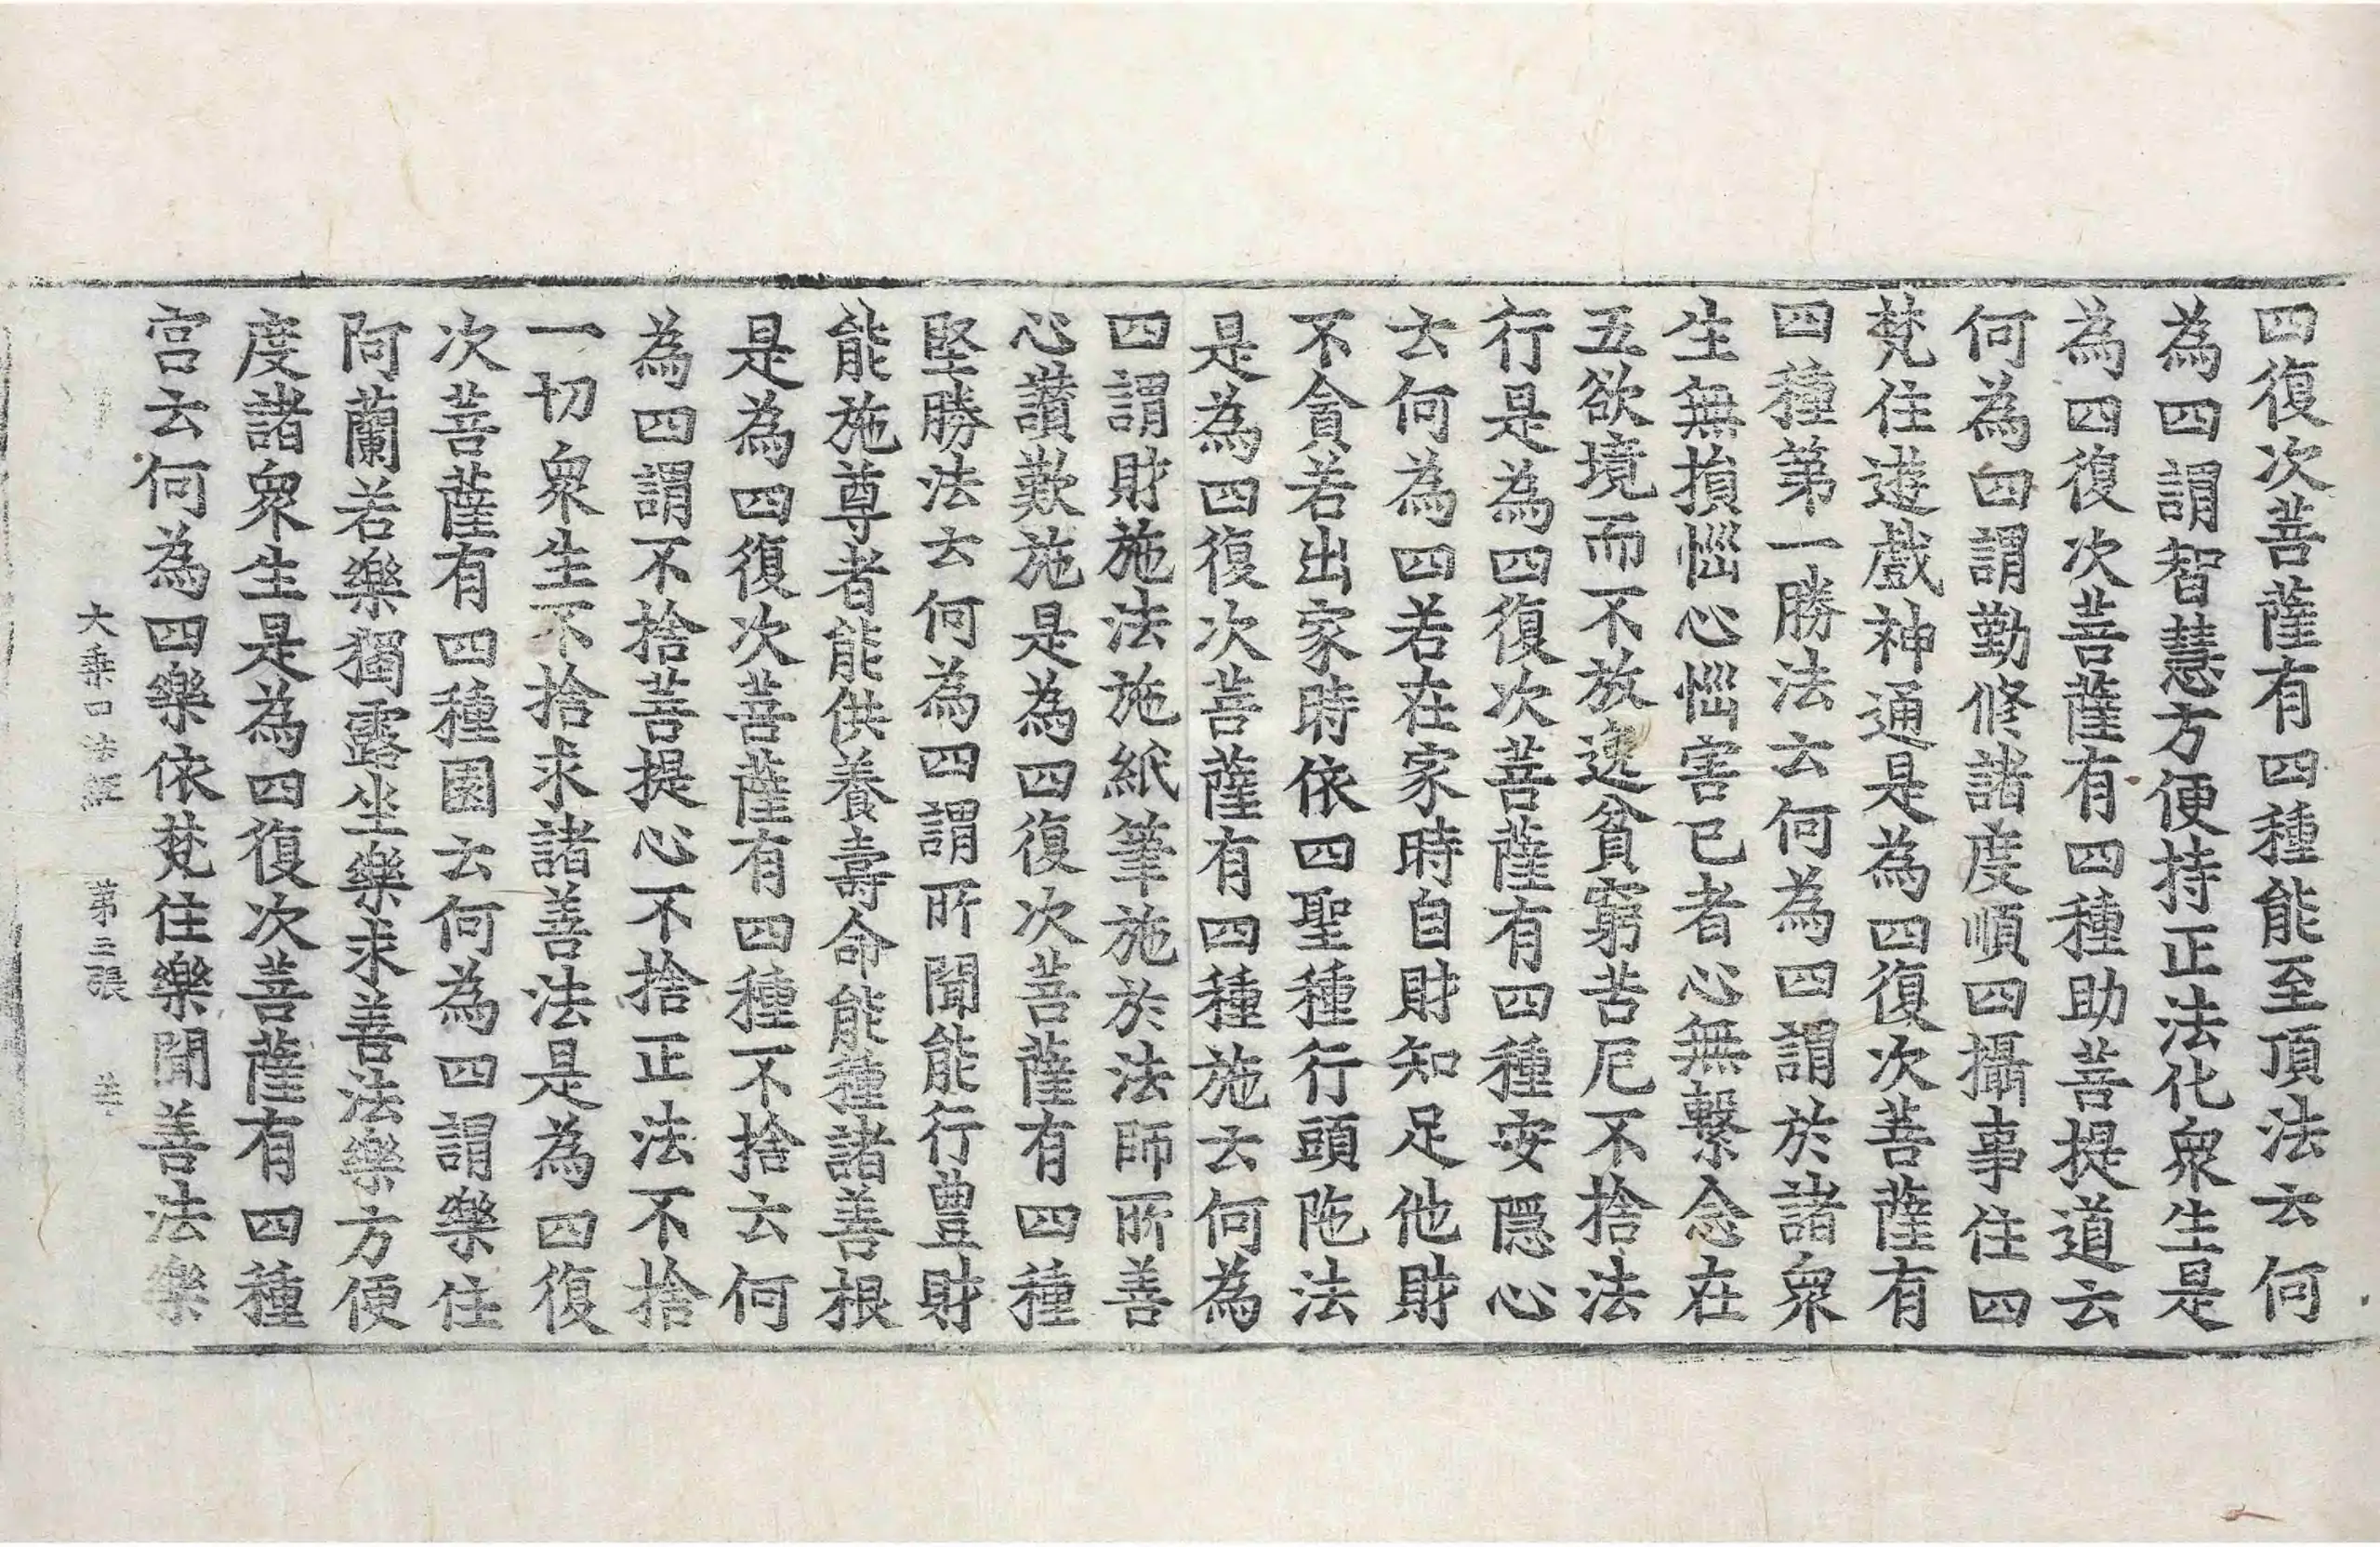 四復次菩薩有四種能至頂法云何
為四謂智慧方便持正法化衆生是
為四復次菩薩有四種助菩提道云
何為四謂勤修諸度順四攝事住四
梵住遊戲神通是為四復次菩薩有
四種第一勝法云何為四謂於諸衆
生無損惱心惱害已者心無繫念在
五欲境而不放逸貧窮苦厄不捨法
行是為四復次菩薩有四種安隱心
云何為四若在家時自財知足他財
不貪若出家時依四聖種行頭陁法
是為四復次菩薩有四種施云何為
四謂財施法施紙筆施於法師所善
心讃歎施是為四復次菩薩有四種
堅勝法云何為四謂所聞能行豊財
能施尊者能供養壽命能種諸善根
是為四復次菩薩有四種不捨云何
為四謂不捨菩提心不捨正法不捨
一切衆生不捨求諸善法是為四復
次菩薩有四種園云何為四謂樂住
阿蘭若樂獨露坐樂求善法樂方便
度諸衆生是為四復次菩薩有四種
宫云何為四樂依梵住樂聞善法樂
大乘四法經 第三張